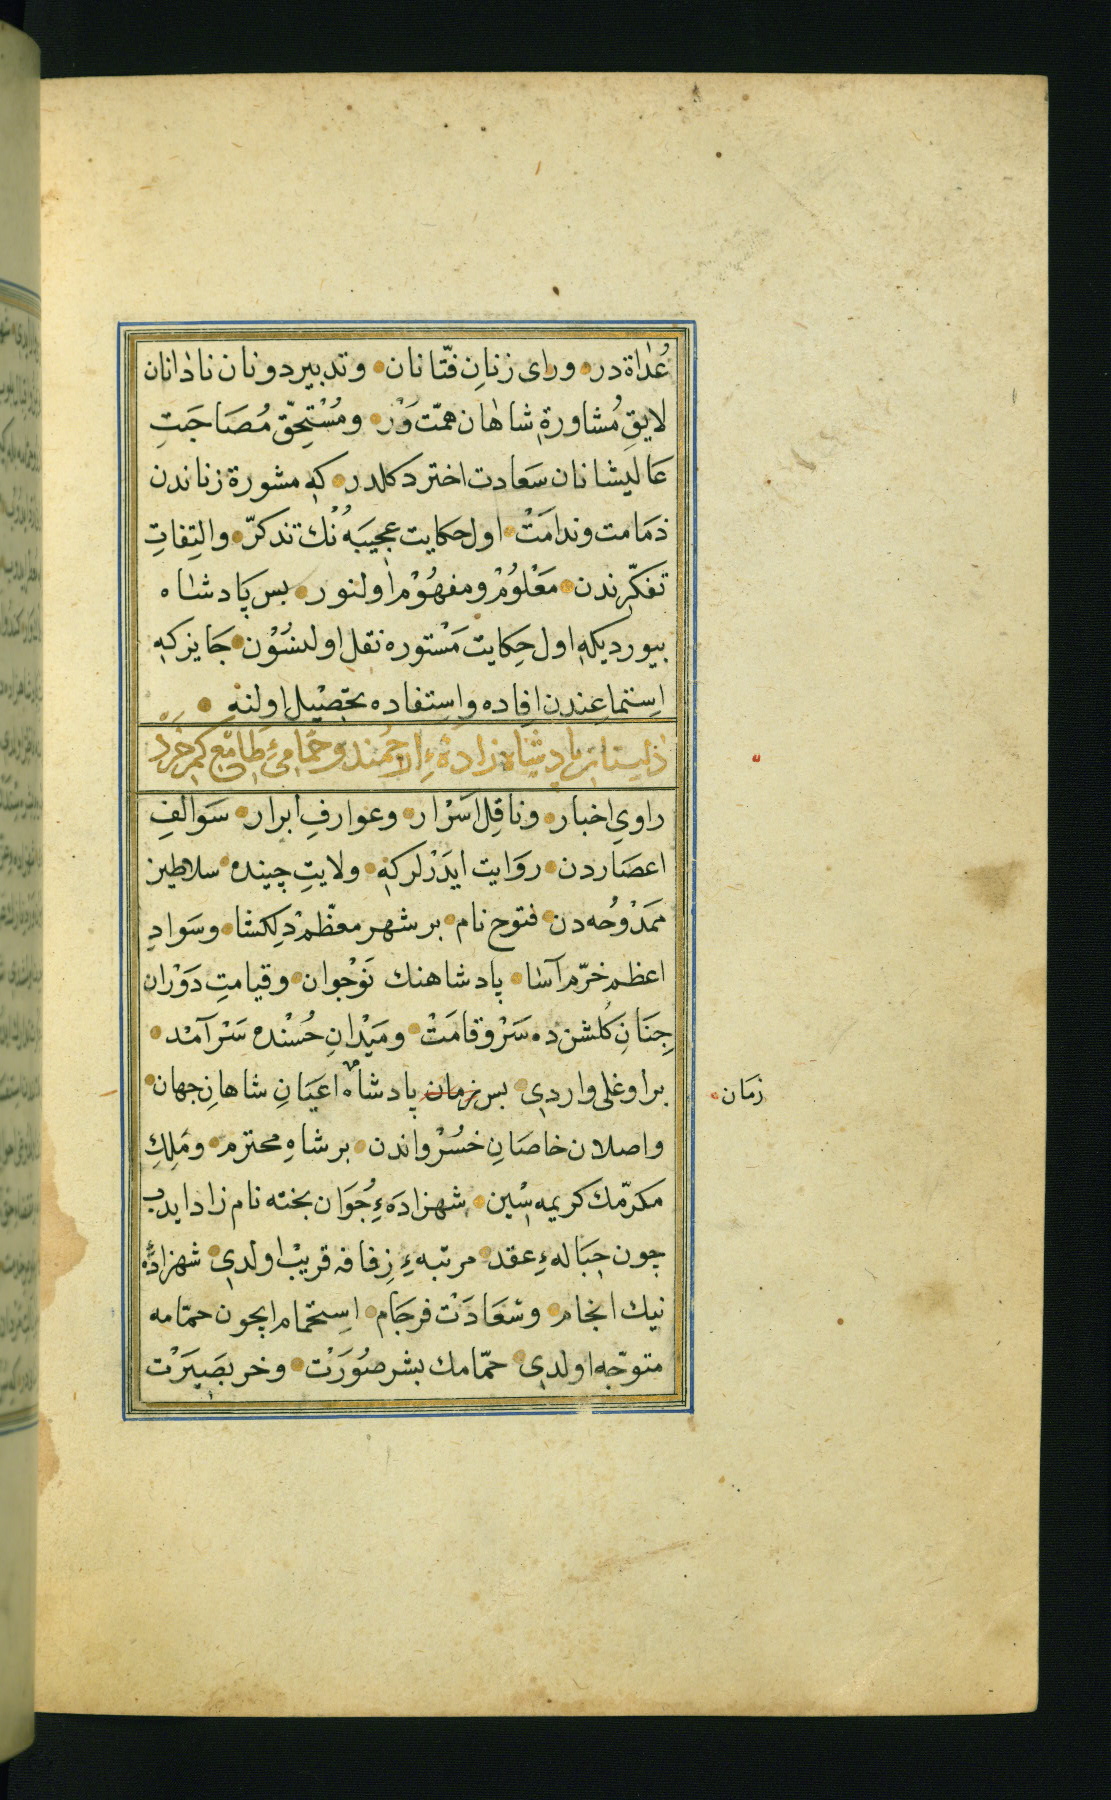 عُدٰاة در وراى زنانِ فتّانان وتدبير دونان نادٰانان
لايقِ مُشاورۀ شاهان همّت وَرْ ومُسْتَحِقّ مُصَاحَبَتِ
عَاليشانان سَعادت اختر دكلدر كه مشورة زناندن
ذمَامت وندامَتْ اول حكايت عجيبَه نُكْ تذكرّ والتِفاتِ
تفكّرندن مَعْلُومْ ومفهُوْم اولنور پس پادشاه
بيورديكه اول حِكايت مَسْتوره نقل اولنسُوْن جَايزكه
اِستماعِندن اِفاده واِستِفاده تحصْيل اولنه
پادشاه زادۀ ارجُمند وحمّامئِ طامعِ كم خِرَدْ
راوىِ اخبار وناقِل اسَرْار وعوارفِ ابرار سَوالفِ
اعصَاردن روَايت ايدَرْلركه ولايتِ چينده سلاطين
ممَدْوُحه دن فتوح نام بر شهر معظّمْ دِلكشا وسَوادِ
اعظم خرّم آسٰا پادشاهنك نَوْجوان وقيامتِ دَوْران
جِنَانِ كُلشن ده سَرْو قامَتْ ومَيْدانِ حُسْنده سَرْ آمَدْ
بر اوغلى واردى پس زمان پادشاه اعيَانِ شاهانِ جهان
زمَان
واصلان خاصَانِ خسُرْواندن بر شاهِ محترم ومَلِكِ
مكرّمك كريمه سْين شهزادَهءِ جُوَان بخته نام زاد ايدب
چون حِبَالهءِ عقد مرتبهءِ زِفافه قريبْ اولدى شهزادۀ
نيك انجام وسَعَادَتْ فرجَام اِستحمام ايچون حمّامه
متوجّه اولدى حمّامك بشر صُورَتْ وخر بصَيَرْت